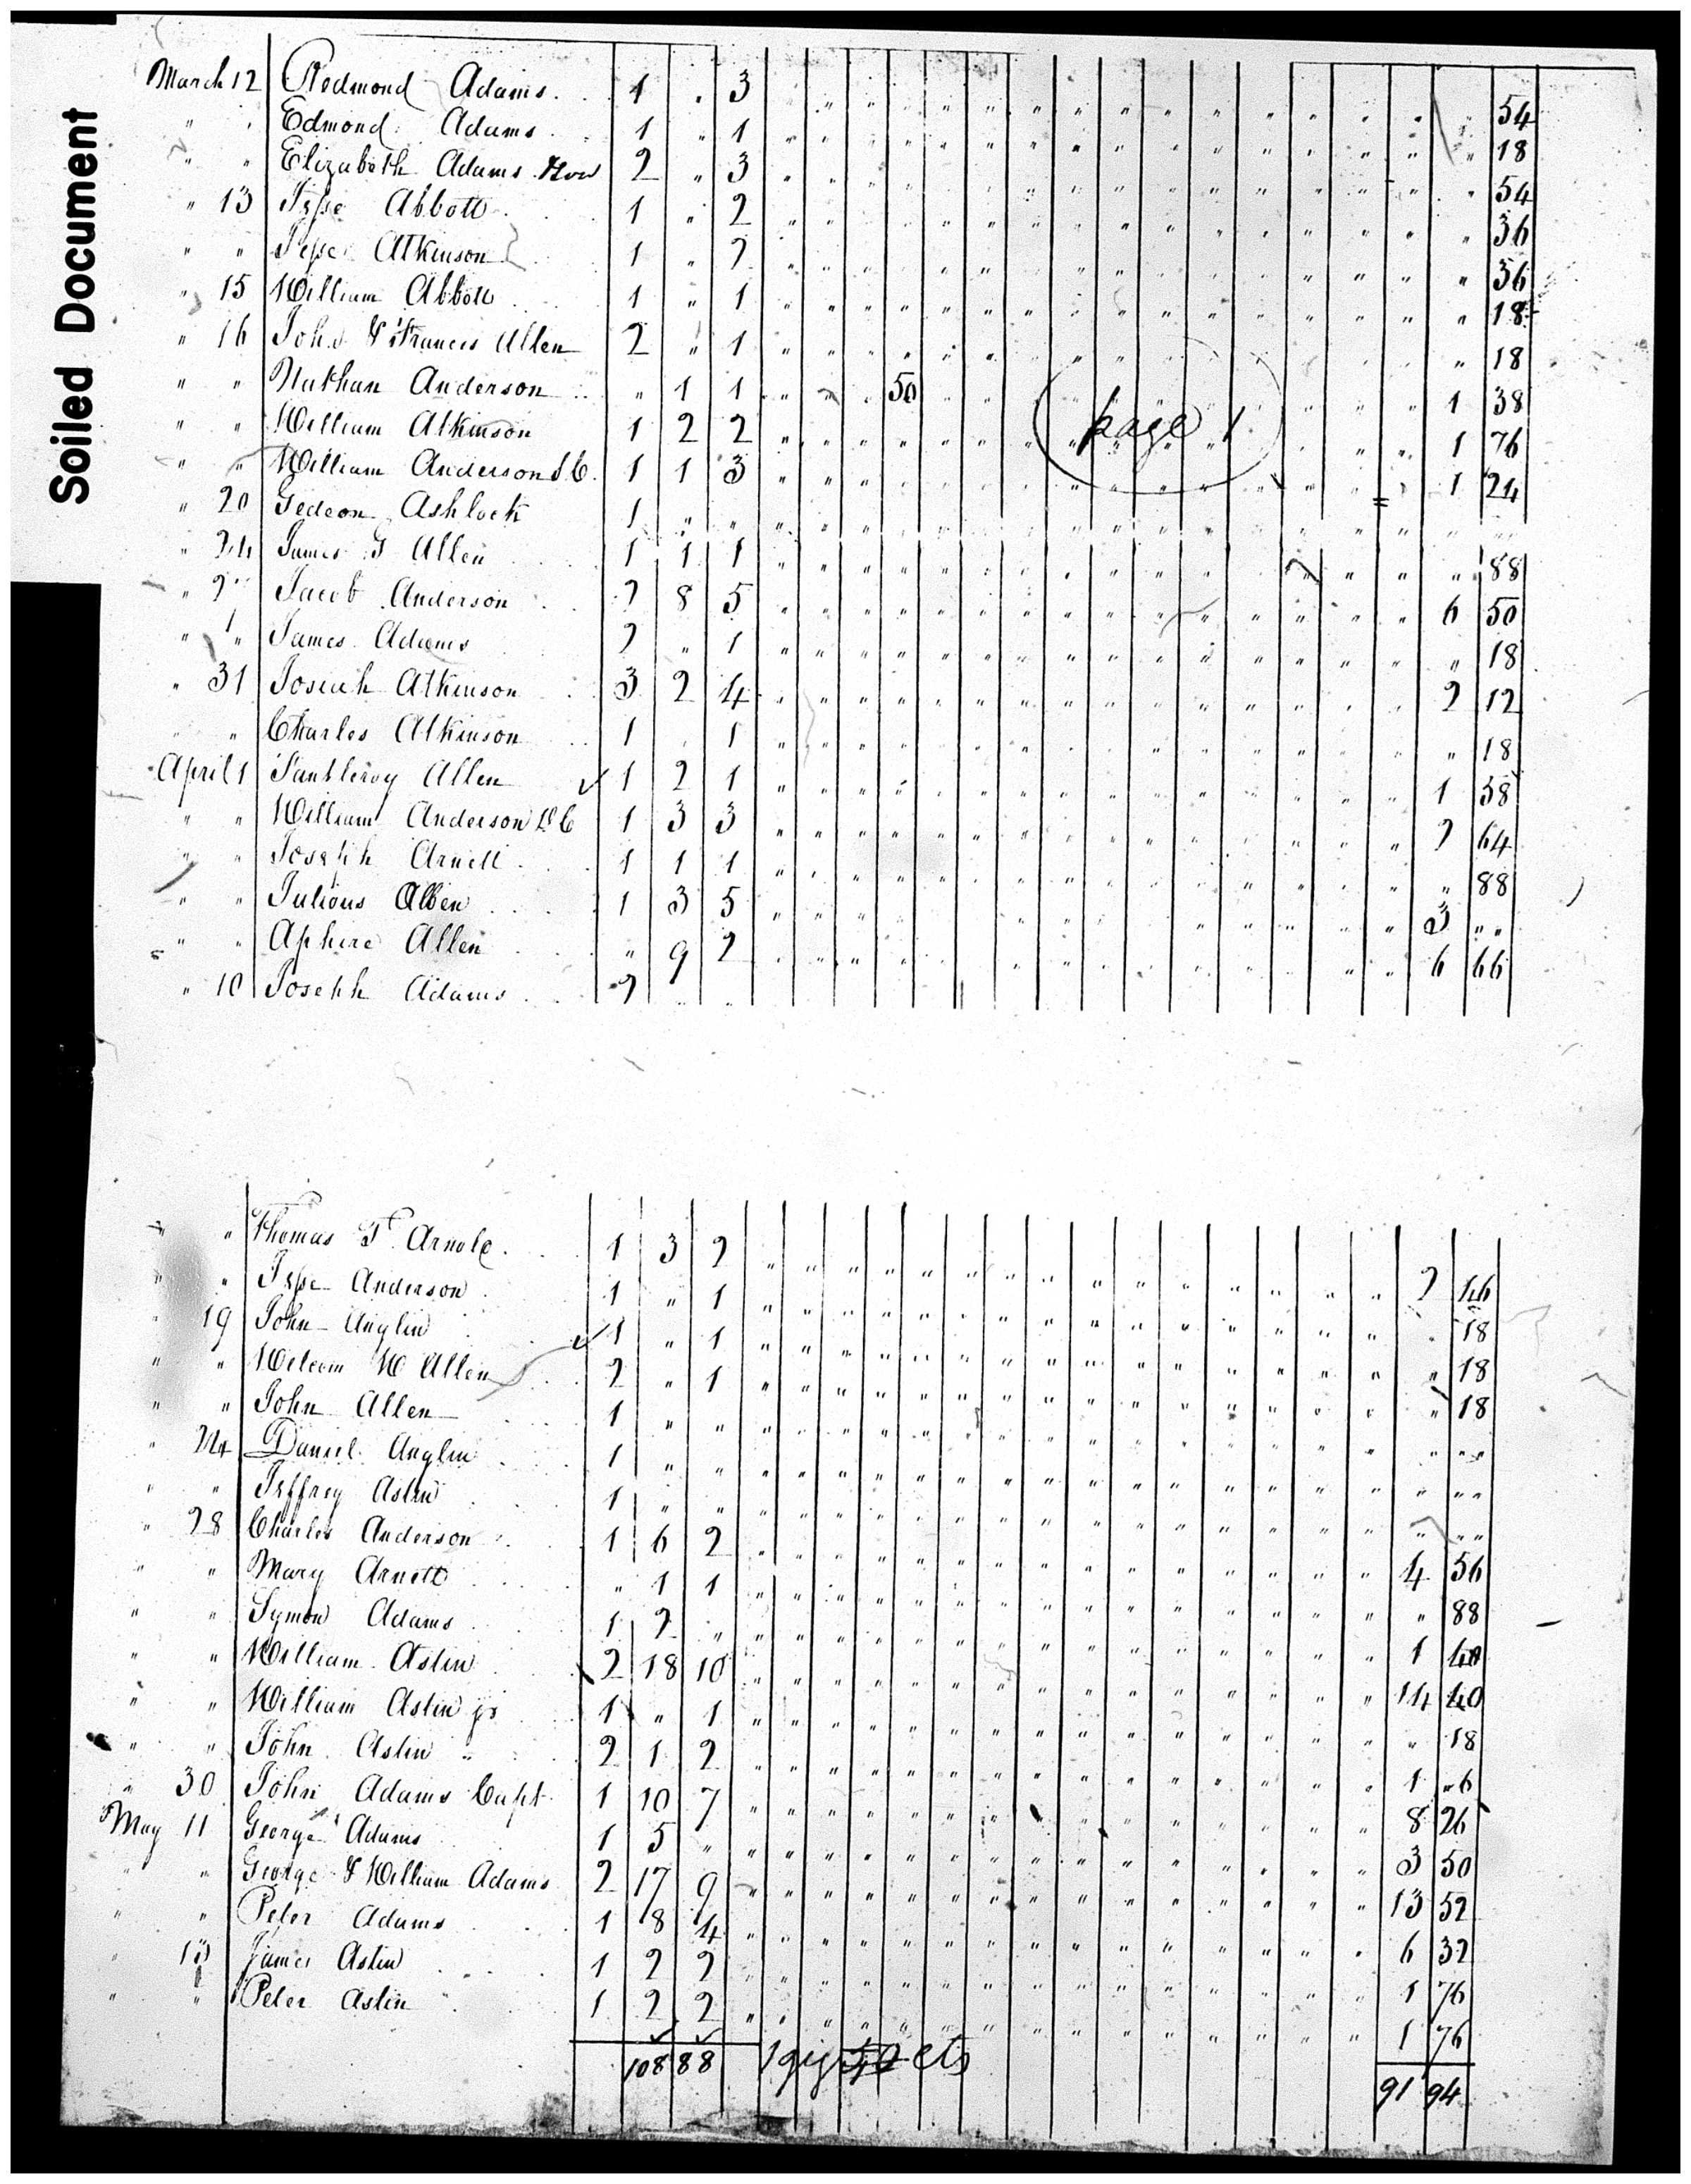 Soiled Document
March 12 Redmond Adams 1 " 3 " " " " " " " " " " " " " " " 54
" " Edmond Adams 1 " 1 " " " " " " " " " " " " " " " 18
" " Elizabeth Adams 2 " 3 " " " " " " " " " " " " " " " 54
" 13 Jesse Abbott 1 " 2 " " " " " " " " " " " " " " " 36
" " Jesse Atkinson 1 " 2 " " " " " " " " " " " " " " " 36
" 15 William Abbott 1 " 1 " " " " " " " " " " " " " " " 18
" 16 John & Francis Allen 2 " 1 " " " " " " " " " " " " " " " 18
" " Nathan Anderson " 1 1 " " " 50 " " " " " " " " " " 1 38
page 1
" " William Atkinson 1 2 2 " " " " " " " " " " " " " " 1 76
" " William Anderson S.C. 1 1 3 " " " " " " " " " " " " " " 1 24
" 20 Gedeon Ashlock 1 " " " " " " " " " " " " " " " " " " "
" 24 James T Allen 1 1 1 " " " " " " " " " " " " " " " 88
" Jacob Anderson 2 8 5 " " " " " " " " " " " " " " 6 50
" " James Adams 2 " 1 " " " " " " " " " " " " " " " 18
" 31 Josiah Atkinson 3 2 4 " " " " " " " " " " " " " " 2 12
" " Charles Atkinson 1 " 1 " " " " " " " " " " " " " " " 18
April 1 Fantleroy Allen 1 2 1 " " " " " " " " " " " " " " 1 58
" " William Anderson D C 1 3 3 " " " " " " " " " " " " " " 2 64
" " Joseph Arnett 1 1 1 " " " " " " " " " " " " " " " 88
" " Julious Allen 1 3 5 " " " " " " " " " " " " " " 3 " "
" " Aphire Allen " 9 2 " " " " " " " " " " " " " " 6 66
" 10 Joseph Adams 2 " "
" " Thomas T. Arnold 1 3 2 " " " " " " " " " " " " " " 2 46
" " Jesse Anderson 1 " 1 " " " " " " " " " " " " " " " 18
" 19 John Anglin 1 " 1 " " " " " " " " " " " " " " " 18
" " Welcom W Allen 2 " 1 " " " " " " " " " " " " " " " 18
" " John Allen 1 " " " " " " " " " " " " " " " " " " "
" 24 Daniel Anglin 1 " " " " " " " " " " " " " " " " " " "
" " Jeffrey Astin 1 " " " " " " " " " " " " " " " " " " "
" 28 Charles Anderson 1 6 2 " " " " " " " " " " " " " " 4 56
" " Mary Arnett " 1 1 " " " " " " " " " " " " " " " 88
" " Symon Adams 1 2 " " " " " " " " " " " " " " " 1 40
" " William Astin 2 18 10 " " " " " " " " " " " " " " 14 40
" " William Astin jr 1 " 1 " " " " " " " " " " " " " " " 18
" " John Astin " 2 1 2 " " " " " " " " " " " " " " 1 "6
" 30 John Adams Capt 1 10 7 " " " " " " " " " " " " " " 8 26
May 11 George Adams 1 5 " " " " " " " " " " " " " " " 3 50
" " George & William Adams 2 17 9 " " " " " " " " " " " " " " 13 52
" " Peter Adams 1 8 4 " " " " " " " " " " " " " " 6 32
" James Astin 1 2 2 " " " " " " " " " " " " " " 1 76
" " Peter Astin 1 2 2 " " " " " " " " " " " " " " 1 76
108 88 1 gig cts 91 94